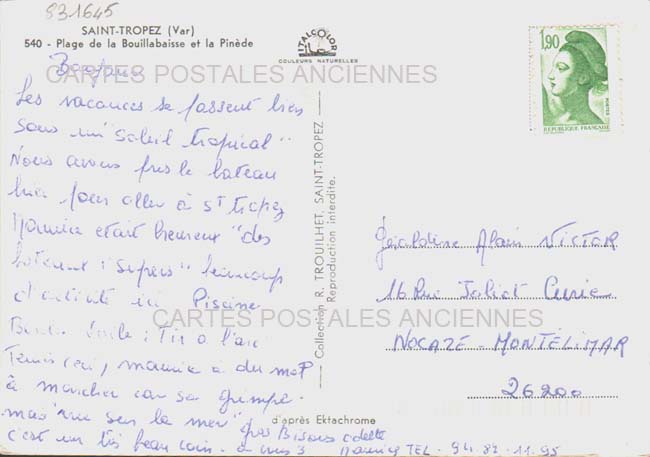 831645
SAINT-TROPEZ (Var)
540 - Plage de la Bouillabaisse et la Pinède
ITALCOLOR
COULEURS NATURELLES
1,90
POSTES
REPUBLIQUE FRANÇAISE
Bonjour
CARTES POSTALES ANCIENNES
Les vacances se passent bien
sous un "soleil tropical"
Nous avons pris le bateau
hier pour aller à St tropez
Maurice etait heureux "des
bateaux "supers" beaucoup
d'activité ici Piscine
Voile : Tir a l'arc
Tennis maurice a du mal
à marcher car sa grimpe
mais "vue sur la mer"
c'est un très beau coin. a
gros Bisous odette
maurice TEL - 94.82-11.95
Collection R. TROUILHET, SAINT-TROPEZ
Reproduction interdite.
Géraldine Alain VICTOR
16 Rue Joliot Curie
CARTES POSTALES ANCIENNES
NOCAZE - MONTELIMAR
26200
d'après Ektachrome